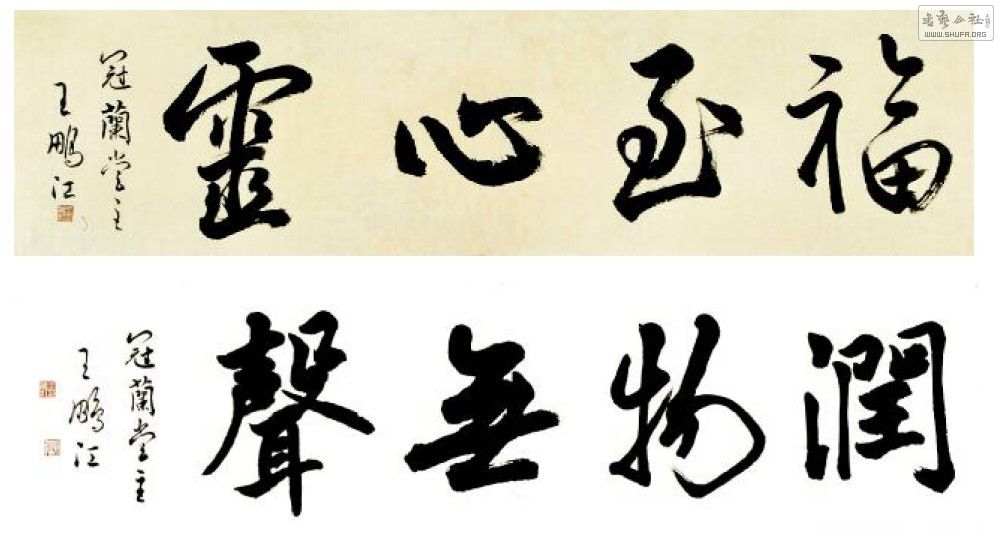 福至心靈
冠蘭堂主
王鵬江
潤物無聲
冠蘭堂主
王鵬江
書藝公社
WWW.SHUFA.ORG